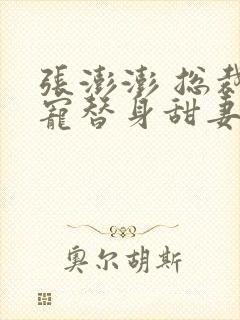 張澎澎 总裁
寵替身甜妻
奥尔胡斯